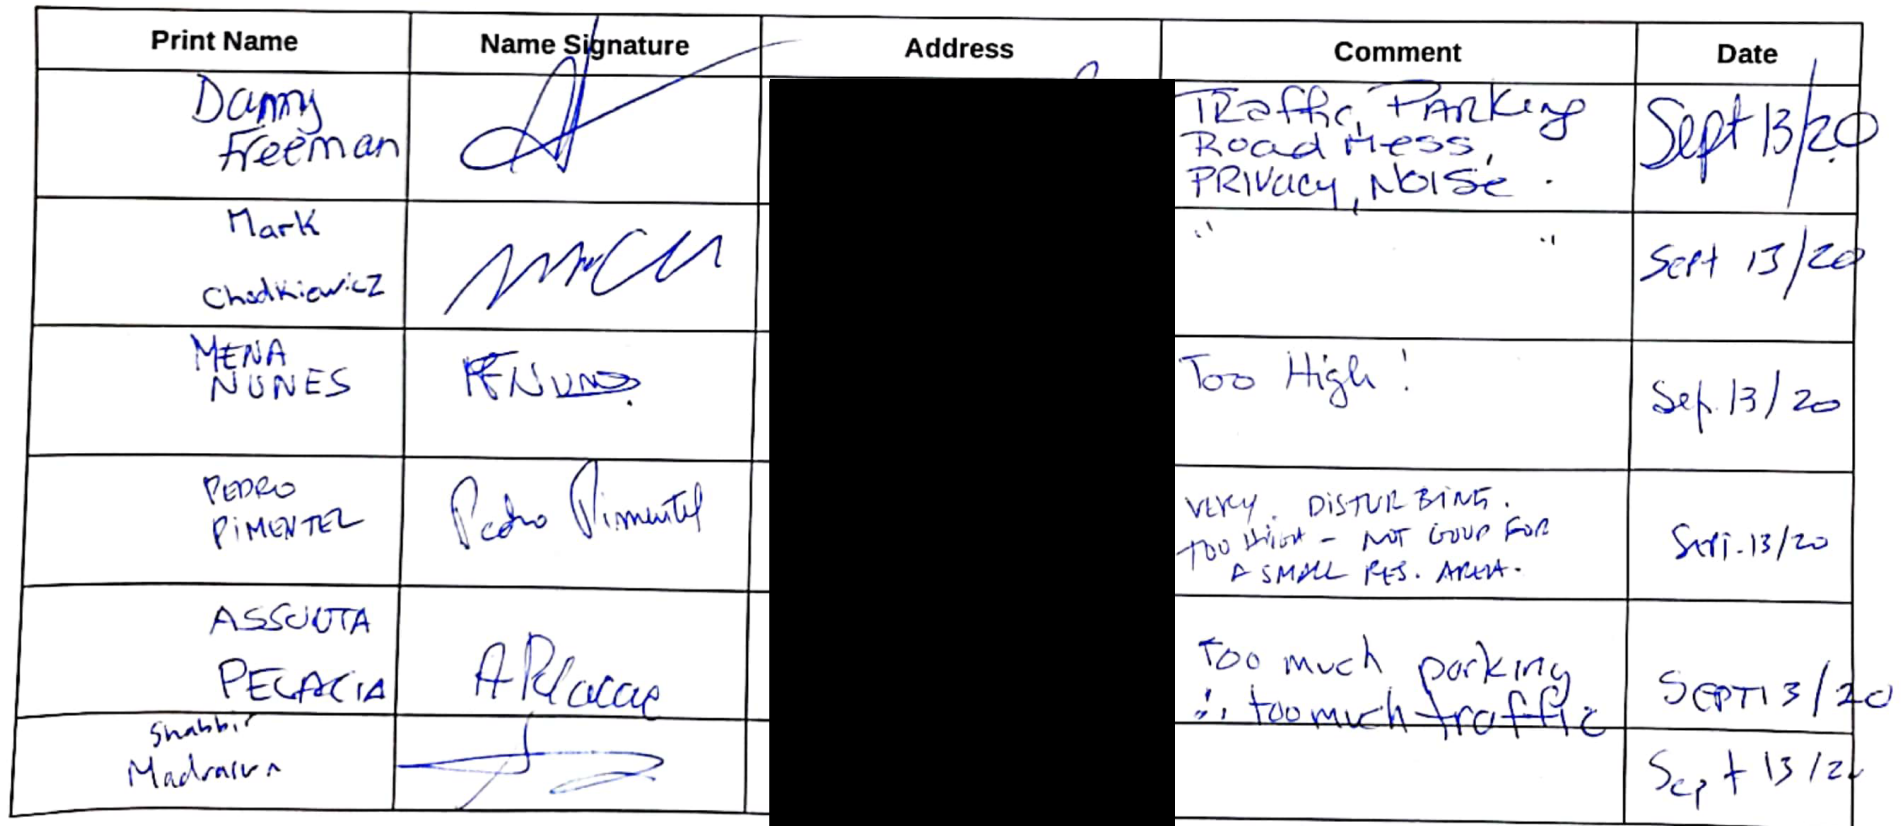 Print Name Name Signature Address Comment Date
Danny
Freeman
Traffic, Parking
Road Mess,
PRIVacy, NOISe.
Sept 13/20
Mark
Chodkiewicz
" "
Sept 13/20
MENA
NUNES
Too High!
Sep. 13/20
PEDRO
PIMENTEL
Pedro Pimentel
VERY. DISTURBING.
TOO HIGH - NOT GOOD FOR
A SMALL RES. AREA.
SEPT. 13/20
ASSUNTA
PELACIA
Too much parking
∴ too much traffic
SEPT 13/20
Shabbir
Sept 13/20